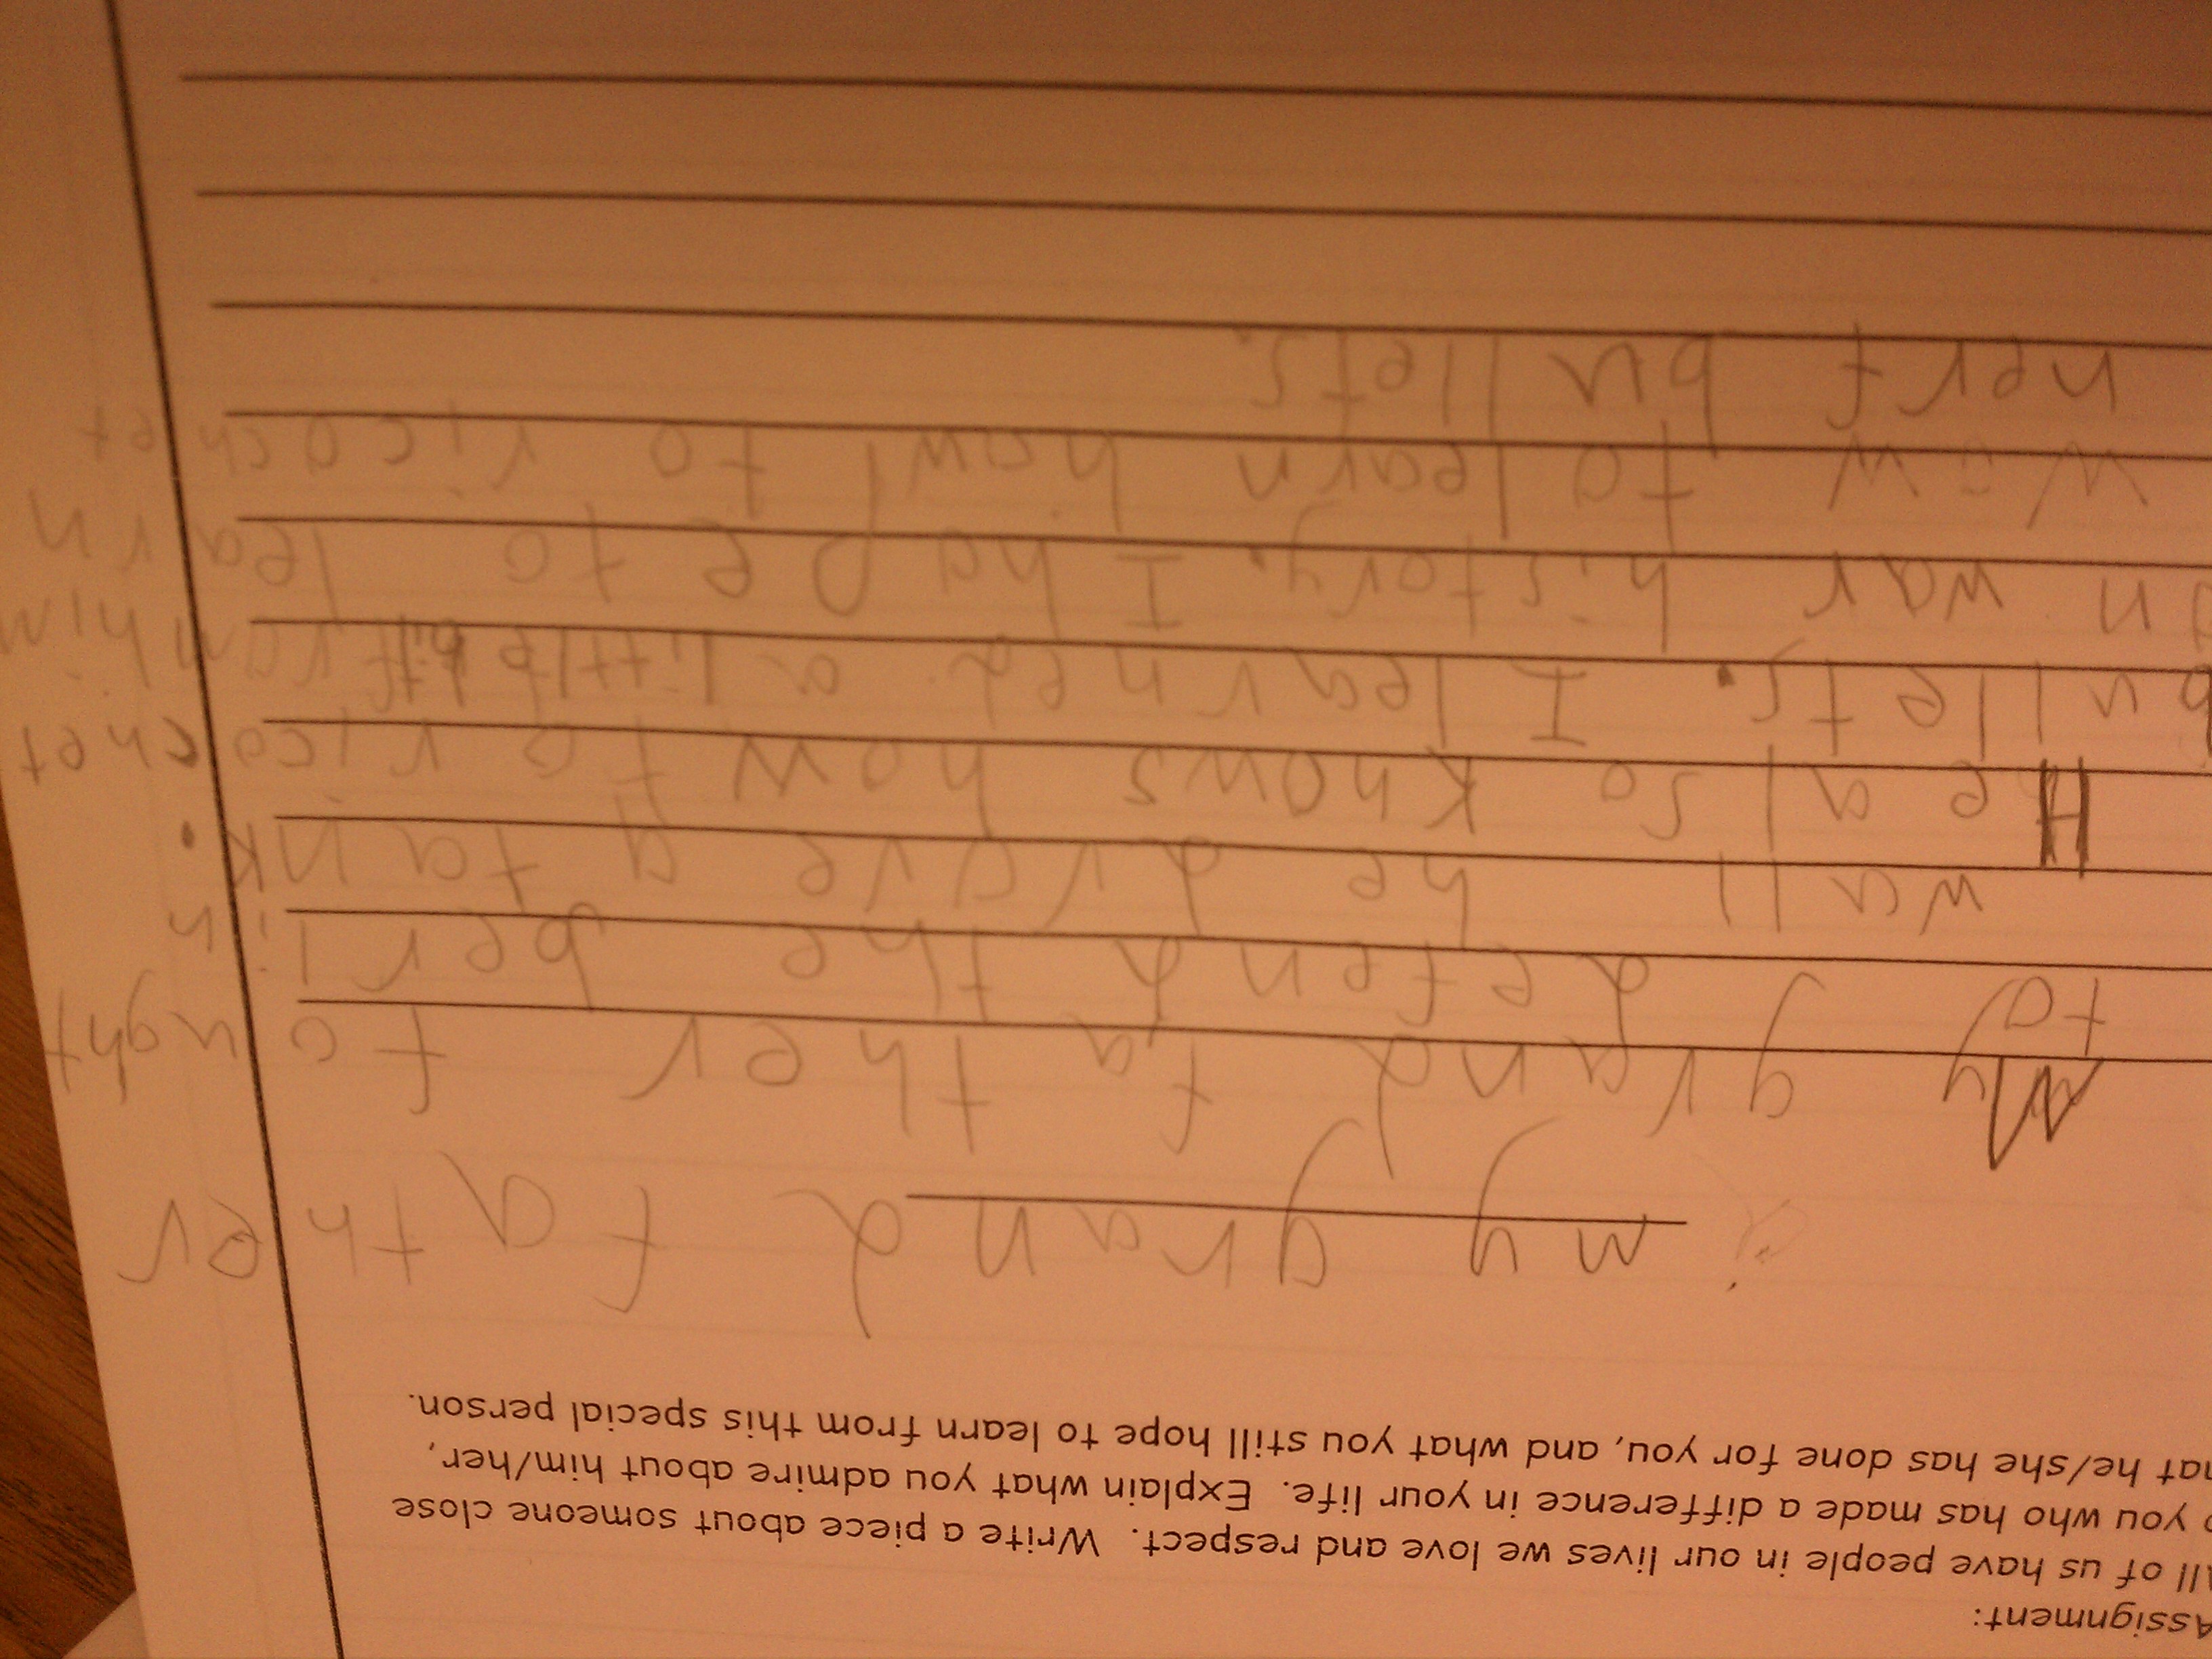 Assignment:
All of us have people in our lives we love and respect. Write a piece about someone close
you who has made a difference in your life. Explain what you admire about him/her,
hat he/she has done for you, and what you still hope to learn from this special person.
my grand father
My grand father fought
to defend the berlin
wall he drove a tank.
He also knows how to ricochet
bullets. I learned a little bit from him
war history. I hope to learn
to learn how to ricochet
bullets.